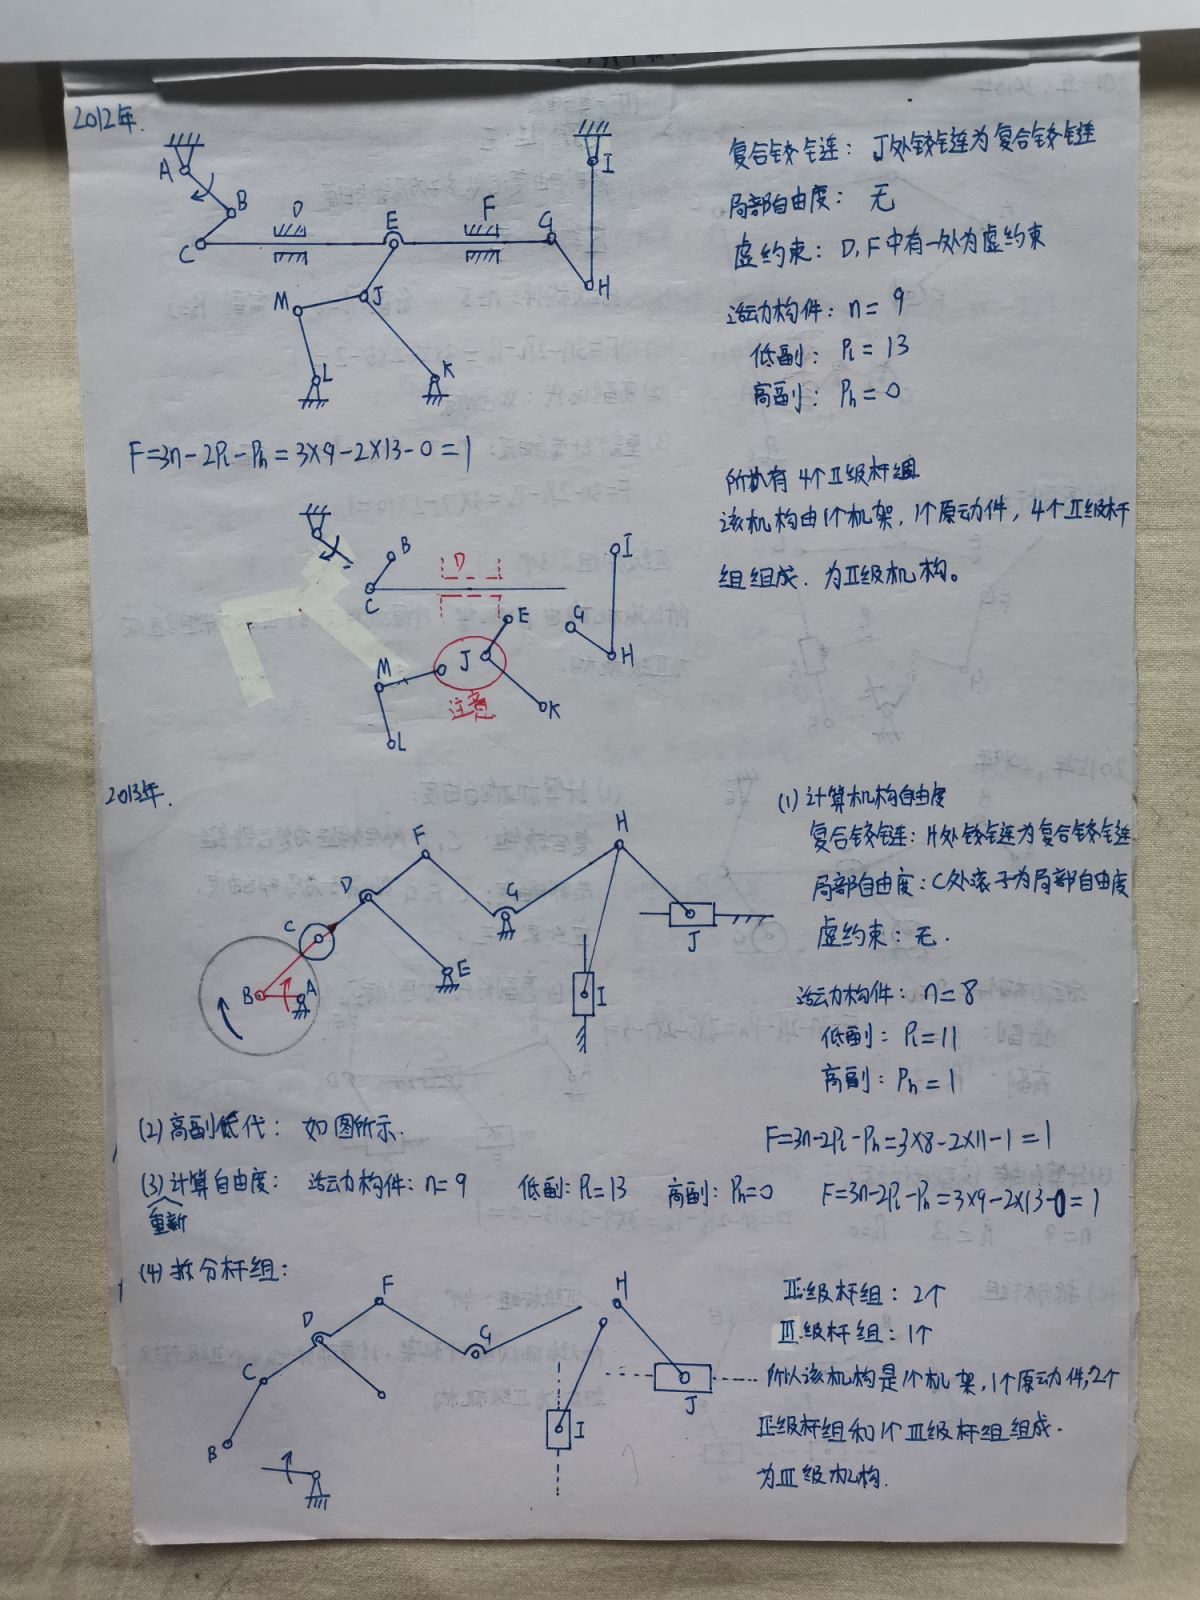 2012年.
A
B
C
D
E
F
G
H
I
J
K
L
M
复合铰链: J处铰链为复合铰链
局部自由度: 无
虚约束: D,F中有一处为虚约束
活动构件: n= 9
低副: Pl = 13
高副: Ph = 0
F=3n-2Pl-Ph=3×9-2×13-0=1
所以有 4个Ⅱ级杆组
该机构由1个机架, 1个原动件, 4个Ⅱ级杆
组组成. 为Ⅱ级机构。
B
C
D
I
E
G
H
J
M
K
L
注意
2013年.
F
H
D
G
C
J
E
B
A
I
(1)计算机构自由度
复合铰链: H处铰链为复合铰链
局部自由度: C处滚子为局部自由度
虚约束: 无.
活动构件: n=8
低副: Pl=11
高副: Ph=1
F=3n-2Pl-Ph=3×8-2×11-1=1
(2)高副低代: 如图所示.
(3)计算自由度: 活动构件: n=9 低副: Pl=13 高副: Ph=0 F=3n-2Pl-Ph=3×9-2×13-0=1
重新
(4)拆分杆组:
F
D
H
G
C
J
B
I
Ⅱ级杆组: 2个
Ⅲ级杆组: 1个
所以该机构是1个机架, 1个原动件, 2个
Ⅱ级杆组和1个Ⅲ级杆组组成.
为Ⅲ级机构.